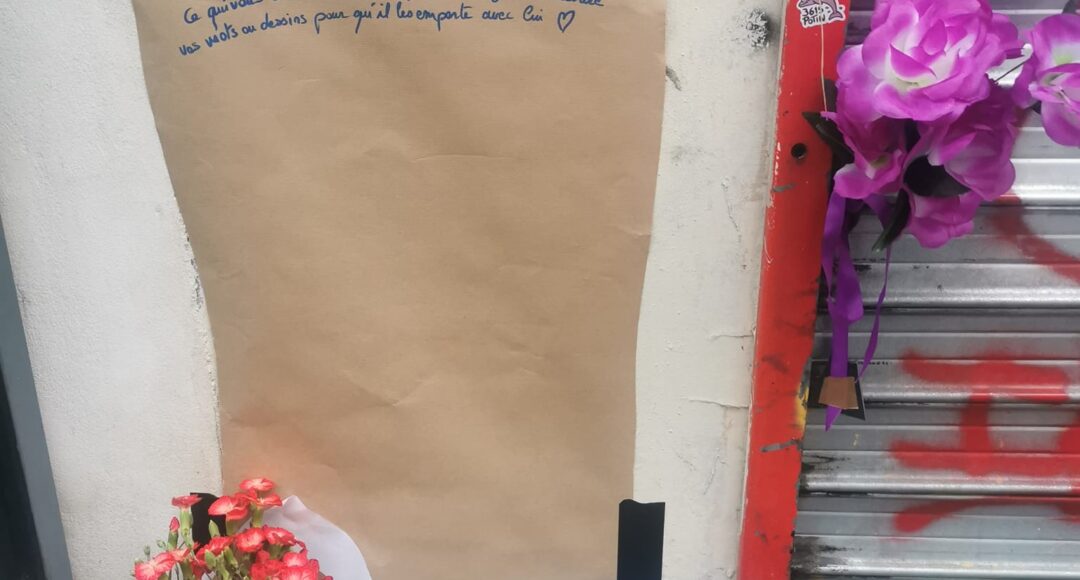 Ce qui vou
vos mots ou dessins pour qu'il les emporte avec lui ♡
3615
POTIN